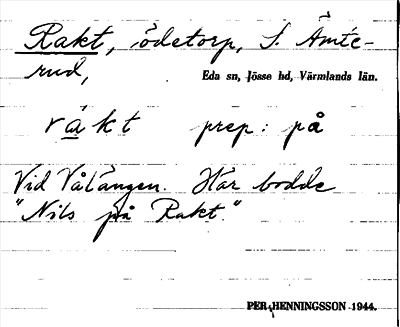 Rakt, ödetorp, S. Ämte-
rud,
Eda sn, Jösse hd, Värmlands län.
råkt prep: på
Vid Vålängen. Här bodde
"Nils på Rakt."
PER HENNINGSSON 1944.